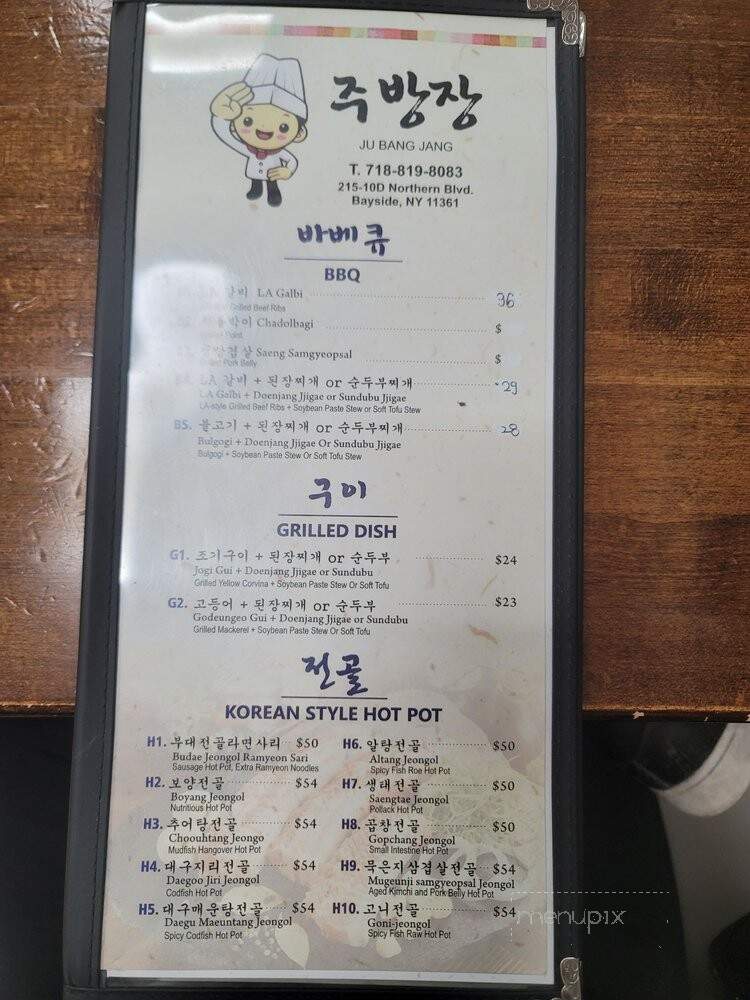 주방장
JU BANG JANG
T. 718-819-8083
215-10D Northern Blvd.
Bayside, NY 11361
바베큐
BBQ
갈비 LA Galbi 36
Grilled Beef Ribs
박이 Chadolbagi $
Point
겹살 Saeng Samgyeopsal $
Pork Belly
LA 갈비 + 된장찌개 or 순두부찌개 29
LA Galbi + Doenjang Jjigae or Sundubu Jjigae
LA-style Grilled Beef Ribs + Soybean Paste Stew or Soft Tofu Stew
B5. 불고기 + 된장찌개 or 순두부찌개 28
Bulgogi + Doenjang Jjigae Or Sundubu Jjigae
Bulgogi + Soybean Paste Stew Or Soft Tofu Stew
구이
GRILLED DISH
G1. 조기구이 + 된장찌개 or 순두부 $24
Jogi Gui + Doenjang Jjigae or Sundubu
Grilled Yellow Corvina + Soybean Paste Stew Or Soft Tofu
G2. 고등어 + 된장찌개 or 순두부 $23
Godeungeo Gui + Doenjang Jjigae or Sundubu
Grilled Mackerel + Soybean Paste Stew Or Soft Tofu
전골
KOREAN STYLE HOT POT
H1. 부대전골라면사리 $50
Budae Jeongol Ramyeon Sari
Sausage Hot Pot, Extra Ramyeon Noodles
H2. 보양전골 $54
Boyang Jeongol
Nutritious Hot Pot
H3. 추어탕전골 $54
Choouhtang Jeongo
Mudfish Hangover Hot Pot
H4. 대구지리전골 $54
Daegoo Jiri Jeongol
Codfish Hot Pot
H5. 대구매운탕전골 $54
Daegu Maeuntang Jeongol
Spicy Codfish Hot Pot
H6. 알탕전골 $50
Altang Jeongol
Spicy Fish Roe Hot Pot
H7. 생태전골 $50
Saengtae Jeongol
Pollack Hot Pot
H8. 곱창전골 $50
Gopchang Jeongol
Small Intestine Hot Pot
H9. 묵은지삼겹살전골 $54
Mugeunji samgyeopsal Jeongol
Aged Kimchi and Pork Belly Hot Pot
H10. 고니전골 $54
Goni-jeongol
Spicy Fish Raw Hot Pot
menupix